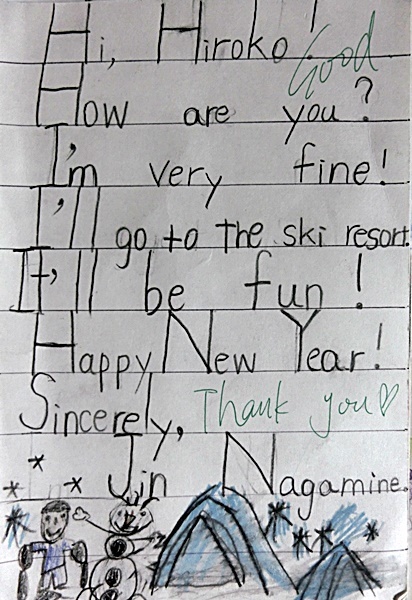 Hi, Hiroko!
Good
How are you?
I'm very fine!
I'll go to the ski resort.
It'll be fun!
Happy New Year!
Sincerely, Thank you♡
Jin Nagamine.